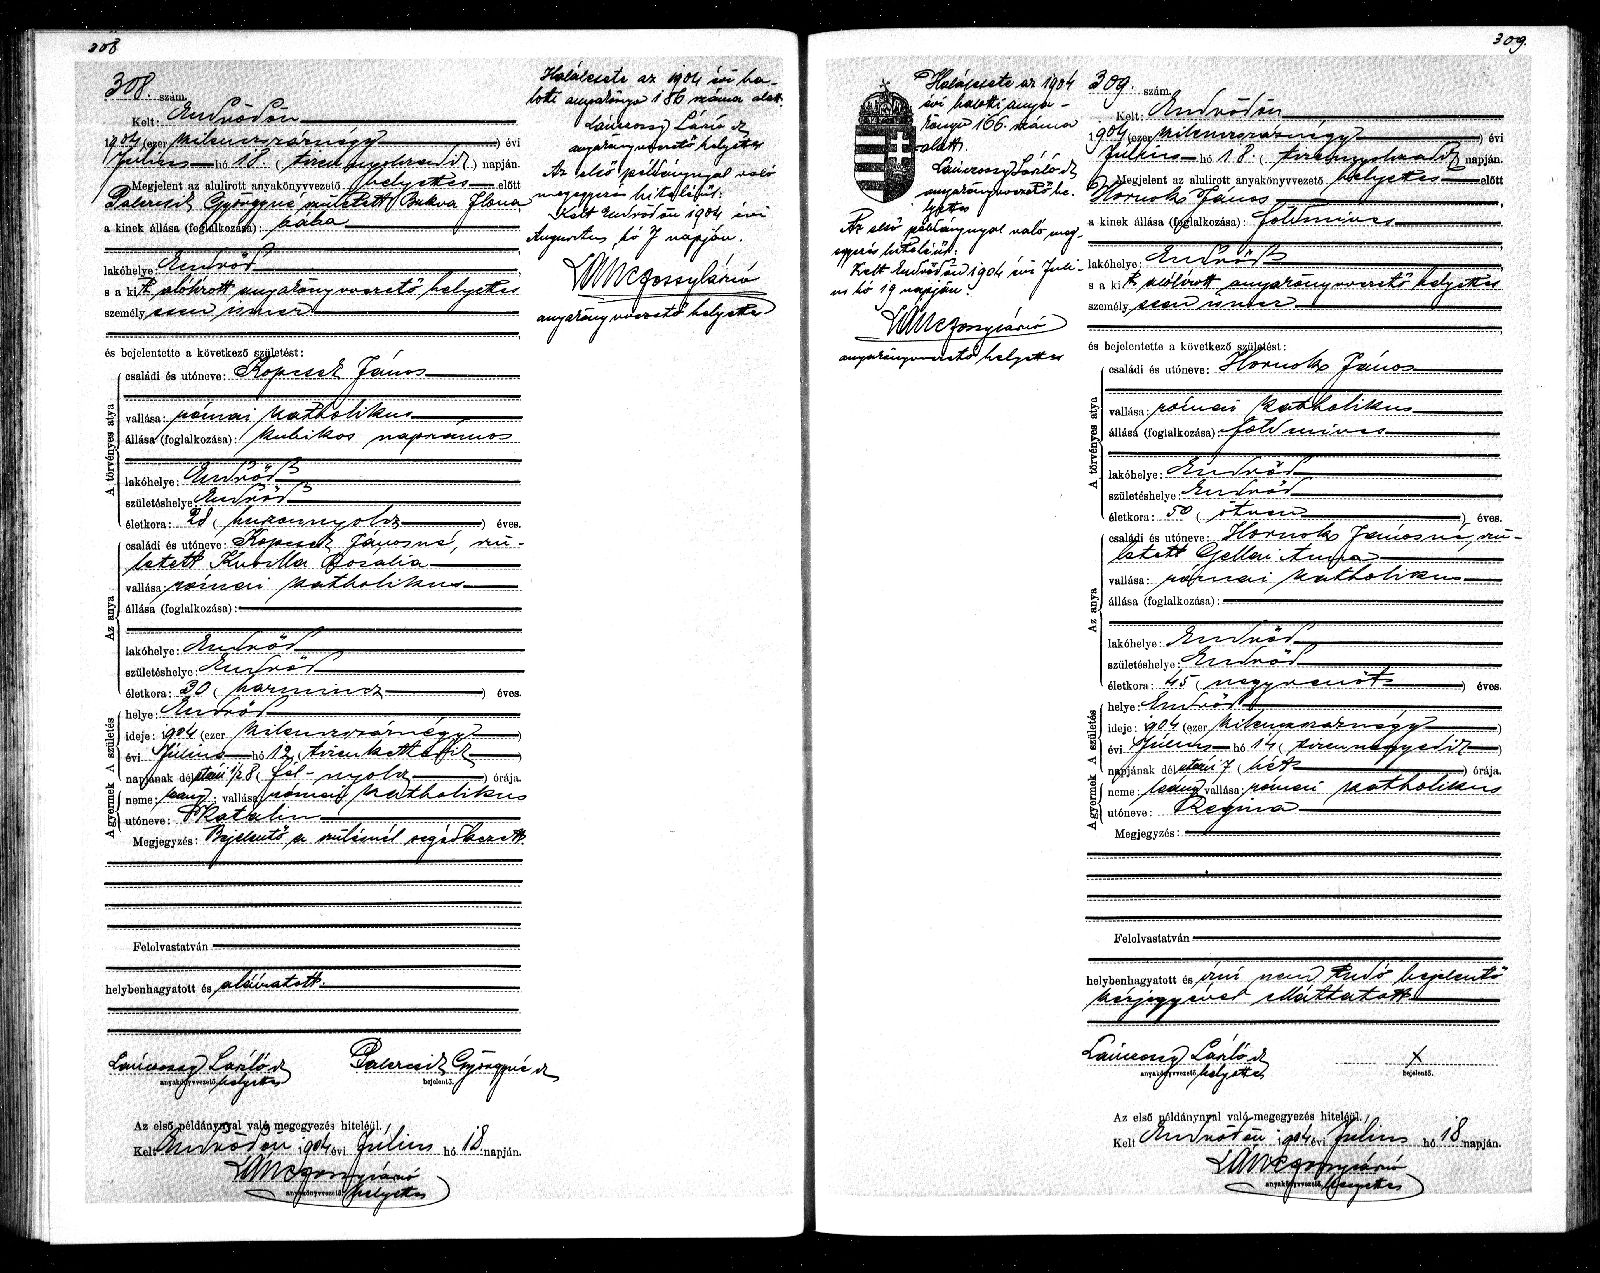 308
308. szám.
Kelt: Endrődön
1904 (ezer kilenczszáznégy) évi
Július hó 18. (tizennyolczadik) napján.
Megjelent az alulirott anyakönyvvezető helyettes előtt
Györgyné született Ilona,
a kinek állása (foglalkozása): bába
lakóhelye: Endrőd
s a kit alólirott anyakönyvvezető helyettes
személyesen ismer
és bejelentette a következő születést:
A törvényes atya
családi és utóneve: Kopcsek János
vallása: római katholikus
állása (foglalkozása): kubikos napszámos
lakóhelye: Endrőd
születéshelye: Endrőd
életkora: 28 (huszonnyolcz) éves.
Az anya
családi és utóneve: Kopcsek Jánosné, szü-
letett Rozália
vallása: római katholikus
állása (foglalkozása):
lakóhelye: Endrőd
születéshelye: Endrőd
életkora: 30 (harmincz) éves.
A gyermek A születés
helye: Endrőd
ideje: 1904 (ezer kilenczszáznégy)
évi Július hó 12 (tizenkettedik)
napjának délutáni 1/2 8 (fél-nyolcz) órája.
neme: leány; vallása: római katholikus
utóneve: Katalin
Megjegyzés: Bejelentő a szülésnél segédkezett.
Felolvastatván
helybenhagyatott és aláiratott.
Lánczossy László sk
anyakönyvvezető helyettes
Györgyné sk
bejelentő.
Az első példánynyal való megegyezés hiteléül.
Kelt Endrődön 1904 évi Július hó 18 napján.
Lánczossy László
anyakönyvvezető helyettes
Halálesete az 1904 évi ha-
lotti anyakönyv 186 száma alatt.
Lánczossy László sk
anyakönyvvezető helyettes
Az első példánynyal való
megegyezés hiteléül:
Kelt Endrődön 1904 évi
Augusztus hó 7 napján.
Lánczossy László
anyakönyvvezető helyettes
309.
Halálesete az 1904
évi halotti anya-
könyv 166 száma
alatt.
Lánczossy László sk
anyakönyvvezető he-
lyettes
Az első példánynyal való meg-
egyezés hiteléül:
Kelt Endrődön 1904 évi Júli-
us hó 19 napján.
Lánczossy László
anyakönyvvezető helyettes
309. szám.
Kelt: Endrődön
1904 (ezer kilenczszáznégy) évi
Július hó 18. (tizennyolczadik) napján.
Megjelent az alulirott anyakönyvvezető helyettes előtt
Hornok János,
a kinek állása (foglalkozása): földmives
lakóhelye: Endrőd
s a kit alólirott anyakönyvvezető helyettes
személyesen ismer
és bejelentette a következő születést:
A törvényes atya
családi és utóneve: Hornok János
vallása: római katholikus
állása (foglalkozása): földmives
lakóhelye: Endrőd
születéshelye: Endrőd
életkora: 50 (ötven) éves.
Az anya
családi és utóneve: Hornok Jánosné, szü-
letett Gellai Anna
vallása: római katholikus
állása (foglalkozása):
lakóhelye: Endrőd
születéshelye: Endrőd
életkora: 45 (negyvenöt) éves.
A gyermek A születés
helye: Endrőd
ideje: 1904 (ezer kilenczszáznégy)
évi Július hó 14 (tizennegyedik)
napjának délutáni 7 (hét) órája.
neme: leány; vallása: római katholikus
utóneve: Regina
Megjegyzés:
Felolvastatván
helybenhagyatott és irni nem tudó bejelentő
kézjegyével elláttatott.
Lánczossy László sk
anyakönyvvezető helyettes
x
bejelentő.
Az első példánynyal való megegyezés hiteléül.
Kelt Endrődön 1904 évi Július hó 18 napján.
Lánczossy László
anyakönyvvezető helyettes